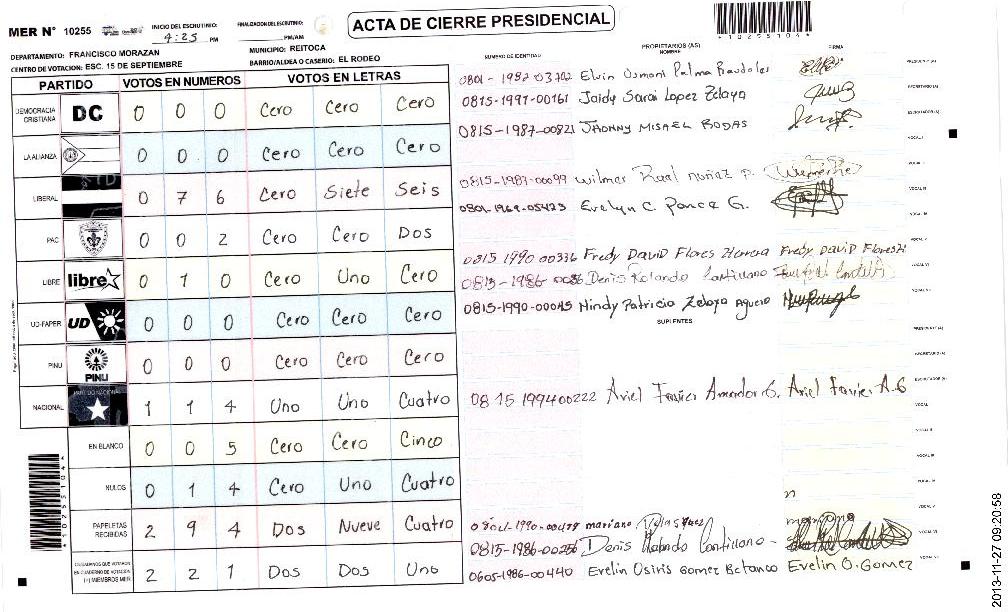 MER N° 10255
INICIO DEL ESCRUTINIO:
4:25 PM
FINALIZACION DEL ESCRUTINIO:
PM/AM
ACTA DE CIERRE PRESIDENCIAL
*1025510*
DEPARTAMENTO: FRANCISCO MORAZAN
MUNICIPIO: REITOCA
CENTRO DE VOTACION: ESC. 15 DE SEPTIEMBRE
BARRIO/ALDEA O CASERIO: EL RODEO
PARTIDO VOTOS EN NUMEROS VOTOS EN LETRAS
DEMOCRACIA CRISTIANA DC 0 0 0 Cero Cero Cero
LA ALIANZA 0 0 0 Cero Cero Cero
LIBERAL 0 7 6 Cero Siete Seis
PAC 0 0 2 Cero Cero Dos
LIBRE libre 0 1 0 Cero Uno Cero
UD-FAPER UD 0 0 0 Cero Cero Cero
PINU PINU 0 0 0 Cero Cero Cero
NACIONAL 1 1 4 Uno Uno Cuatro
EN BLANCO 0 0 5 Cero Cero Cinco
NULOS 0 1 4 Cero Uno Cuatro
PAPELETAS RECIBIDAS 2 9 4 Dos Nueve Cuatro
CIUDADANOS QUE VOTARON EN CUADERNO DE VOTACION (+) MIEMBROS MER 2 2 1 Dos Dos Uno
PROPIETARIOS (AS)
NUMERO DE IDENTIDAD NOMBRE FIRMA
0801-1982-03702 Elvin Osmani Palma PRESIDENTE (A)
0815-1997-00161 Jaidy Sarai Lopez Zelaya SECRETARIO (A)
0815-1987-00821 JHONNY MISAEL RODAS ESCRUTADOR (A)
VOCAL I
0815-1987-00099 Wilmar nuñez p. VOCAL II
0801-1969-05423 Evelyn C. Ponce G. VOCAL III
0815 1990 00336 Fredy David Flores Herrera Fredy David Flores H VOCAL V
0815-1986 Denis Rolando VOCAL VI
0815-1990-00045 Nindy Patricia Zelaya Aguero
SUPLENTES
PRESIDENTE (A)
SECRETARIO (A)
ESCRUTADOR (A)
0815 199400222 Ariel Favier Amador G. Ariel Favier A.G
VOCAL
VOCAL II
VOCAL III
VOCAL IV
mariano Velasquez VOCAL V
0815-1986-00256 Denis Rolando VOCAL VI
0605-1986-00440 Evelin Osiris Gomez Betanco Evelin O. Gomez
2013-11-27 09:20:58